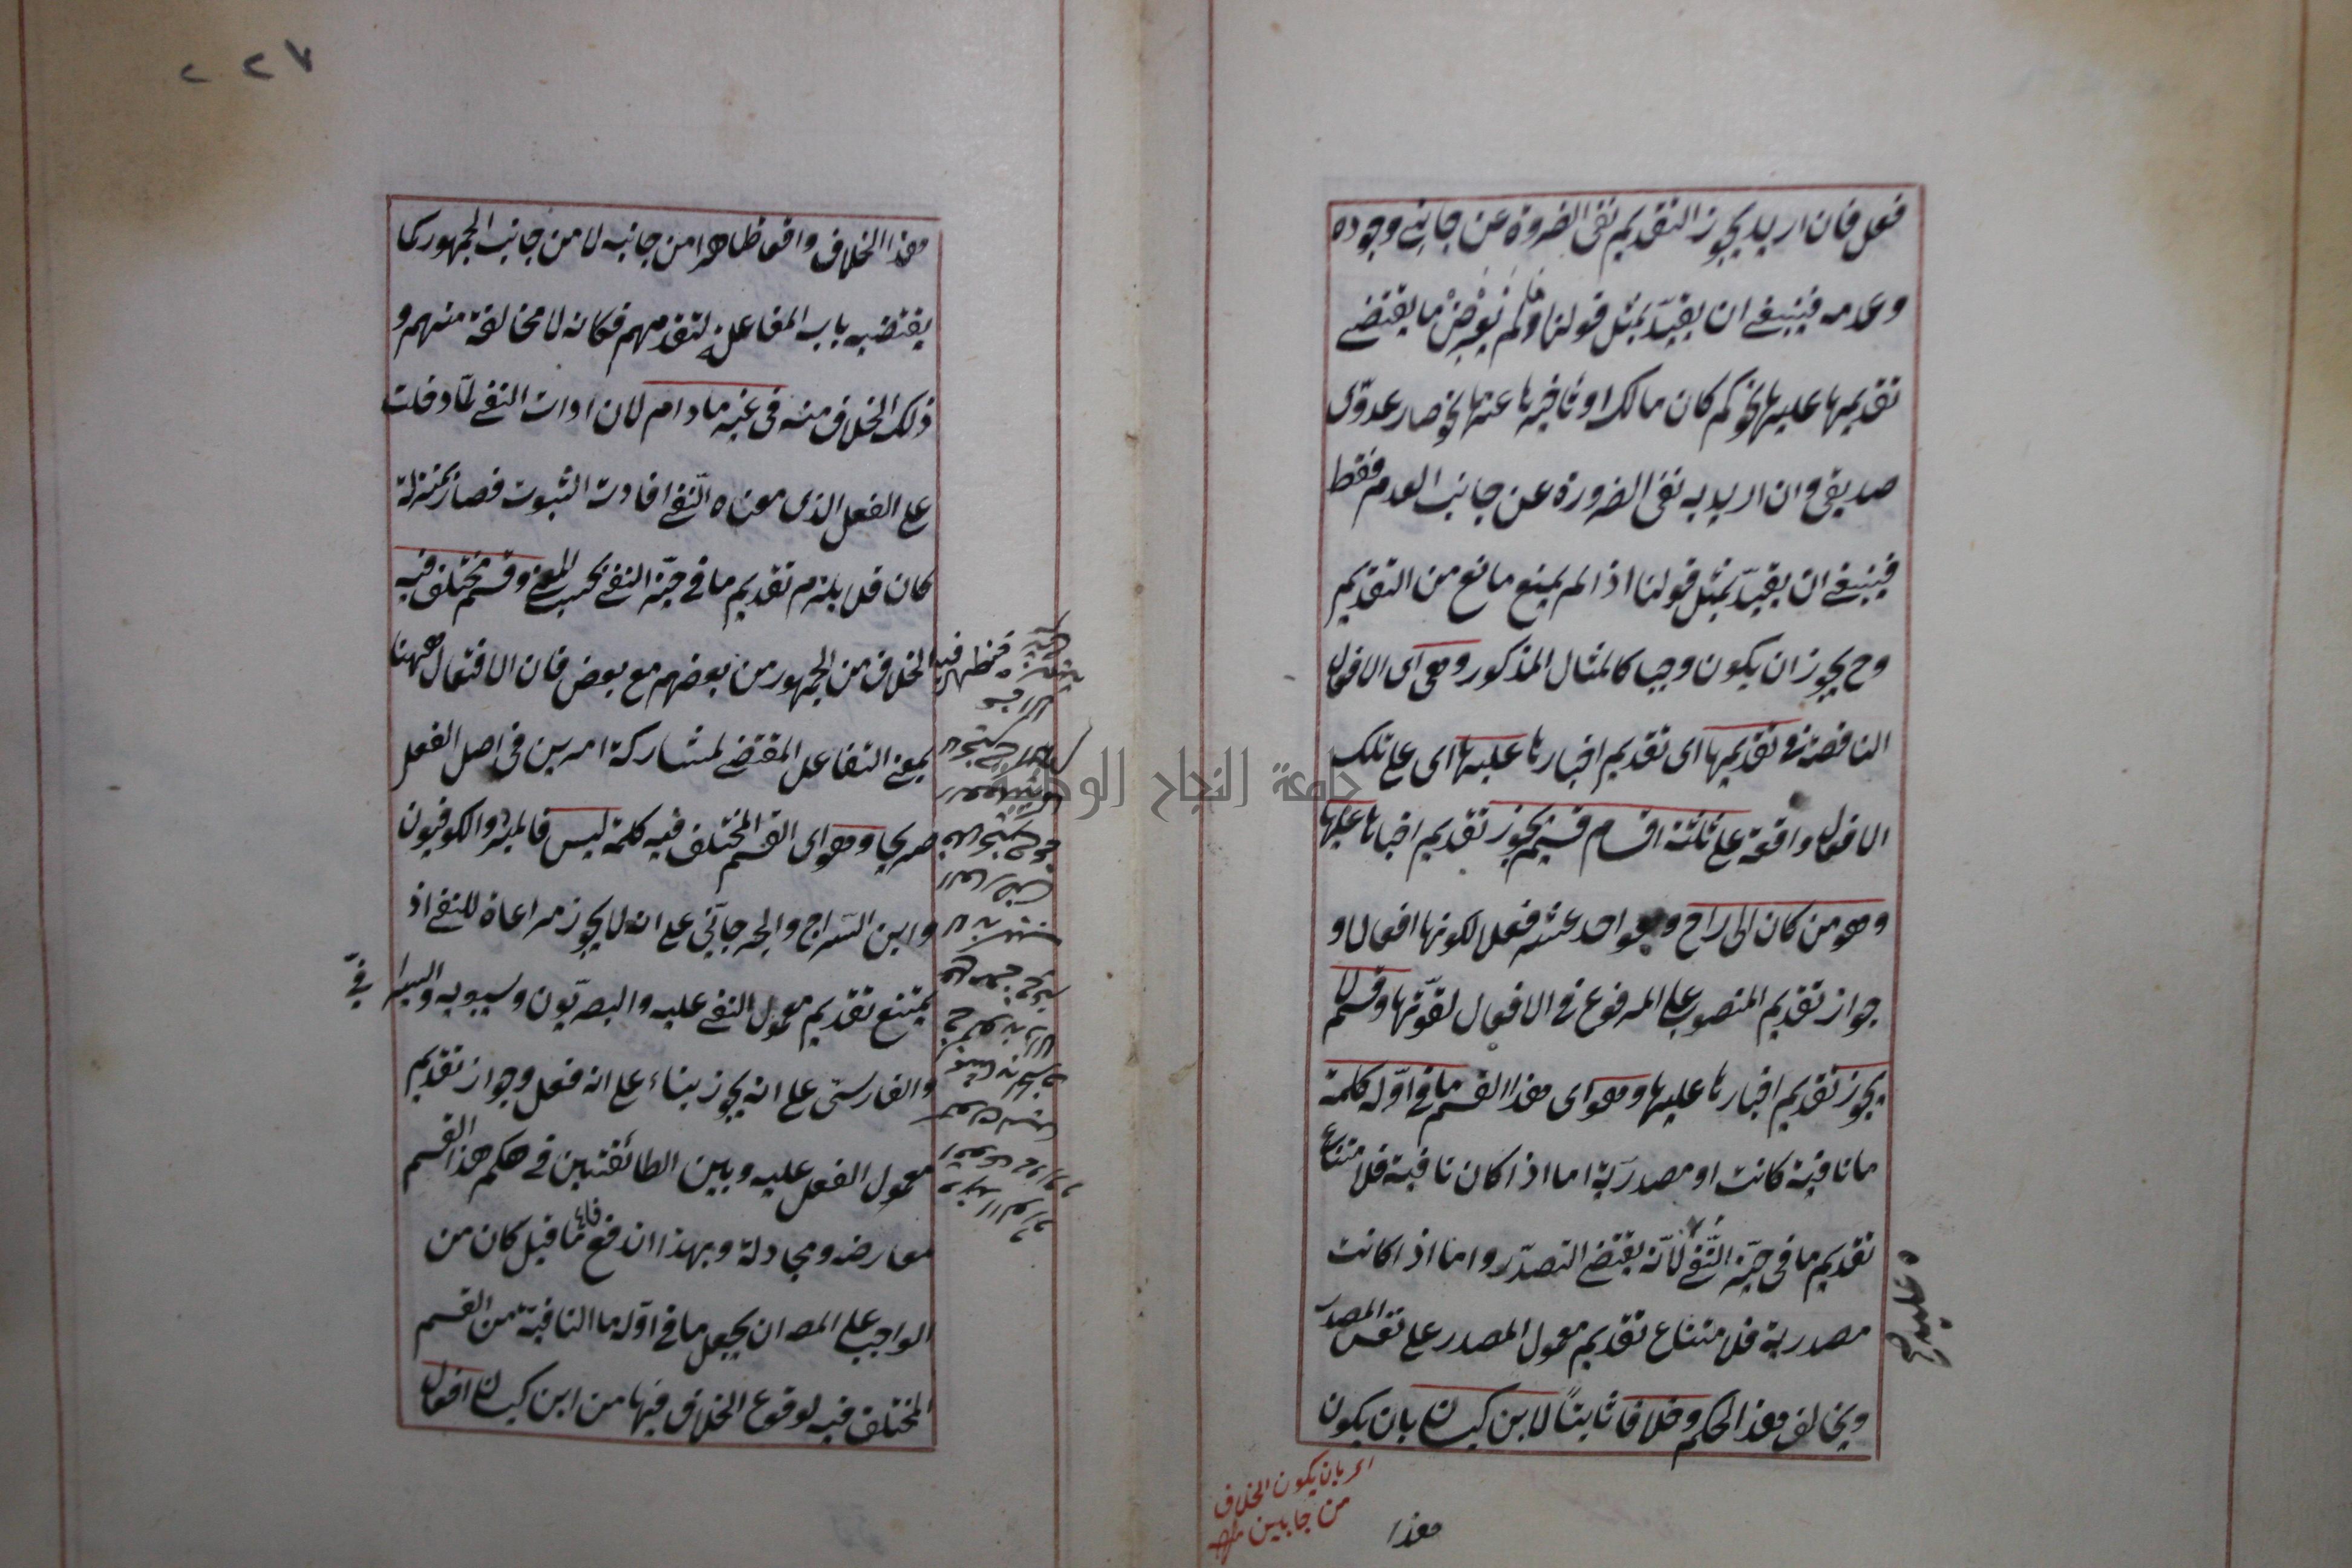 فعل فان اريد بجواز التقديم نفى الضرورة عن جانبى وجوده
وعدمه فينبغى ان يقيد بمثل قولنا ولم يعرض ما يقتضى
تقديمها عليها نحو كم كان مالك او تأخيرها عنها نحو صار عدوى
صديقى وان اريد به نفى الضرورة عن جانب العدم فقط
فينبغى ان يقيد بمثل قولنا اذا لم يمنع مانع من التقديم
وح يجوز ان يكون واجبا كالمثال المذكور وهى اى الافعال
الناقصة فى تقديمها اى تقديم اخبارها عليها اى على تلك
الافعال واقعة على ثلثة اقسام قسم يجوز تقديم اخبارها عليها
وهو من كان الى راح وهو احد عشر فعلا لكونها افعالا و
جواز تقديم المنصوب على المرفوع فى الافعال لقوتها وقسم لا
يجوز تقديم اخبارها عليها وهو اى هذا القسم ما فى اوله كلمة
ما نافية كانت او مصدرية اما اذا كان نافية فلامتناع
تقديم ما فى حيّز النّفى لانّه يقتضى التصدّر واما اذا كانت
مصدرية فلامتناع تقديم معمول المصدر على نفس المصدر
ويخالف هذا الحكم خلافا ثابتا لابن كيسان بان يكون
عليه صح
اى بان يكون الخلاف
من جانبين
هذا
٢٢٧
هذا الخلاف واقعا ظاهرا من جانبه لا من جانب الجمهور كما
يقتضيه باب المفاعلة لتقدمهم فكانه لا مخالفة منهم و
ذلك الخلاف منه فى غير ما دام لان ادات النفى لمّا دخلت
على الفعل الذى معناه النّفى افادت الثبوت فصار بمنزلة
كان فلا يلزم تقديم ما فى حيّز النفى بحسب المعنى وقسم مختلف فيه
الخلاف من الجمهور من بعضهم مع بعض فان الافتعال ههنا
بمعنى التفاعل المقتضى لمشاركة امرين فى اصل الفعل
صريحا وهو اى القسم المختلف فيه كلمة ليس فالمبرد والكوفيون
وابن السّراج والجرجانّى على انه لا يجوز مراعاة للنفى اذ
يمتنع تقديم معمول النفى عليه والبصريّون وسيبويه والسيرا
فىّ
والفارسى على انه يجوز بناء على انه فعل وجواز تقديم
معمول الفعل عليه وبين الطائفتين فى حكم هذا القسم
معارضة ومجادلة وبهذا اندفع ما قيل كان من
الواجب على المصـ ان يجعل ما فى اوّله ما النافية من القسم
المختلف فيه لوقوع الخلاف فيها من ابن كيسان افعال
جامعة النجاح الوطنية